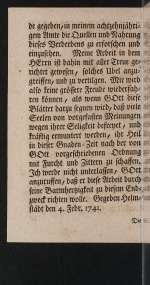 de gegeben, in meinem achtzehnjähri-
gen Amte die Quellen und Nahrung
dieses Verderbens zu erforschen und
einzusehen. Meine Arbeit in dem
HErrn ist dahin mit aller Treue ge-
richtet gewesen, solches Übel anzu-
greiffen, und zu vertilgen. Mir wird
also keine grössere Freude wiederfah-
ren können, als wenn GOtt diese
Blätter darzu segnen wird, daß viele
Seelen von vorgefasten Meinungen
wegen ihrer Seligkeit befreyet, und
kräftig ermuntert werden, ihr Heil
in dieser Gnaden-Zeit nach der von
GOtt vorgeschriebenen Ordnung
mit Furcht und Zittern zu schaffen.
Ich werde nicht unterlassen, GOtt
anzuruffen, daß er diese Arbeit durch
seine Barmhertzigkeit zu diesem End-
zweck richten wolle. Gegeben Helm-
städt den 4. Febr. 1742.
Die